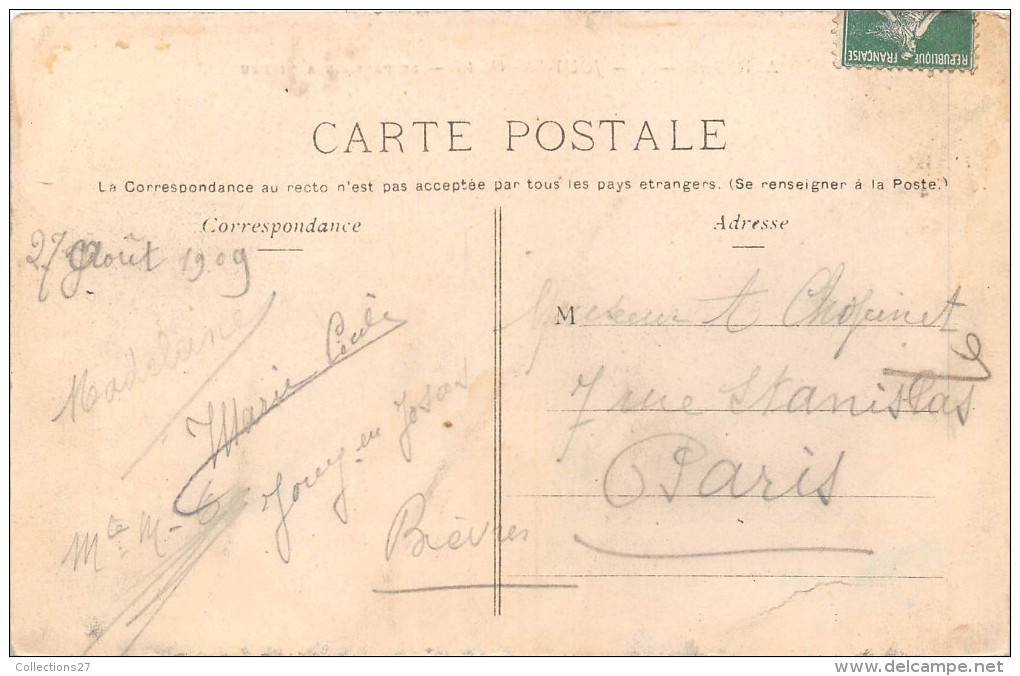 RÉPUBLIQUE FRANÇAISE
CARTE POSTALE
La Correspondance au recto n'est pas acceptée par tous les pays etrangers. (Se renseigner à la Poste.)
Correspondance
27 Août 1909
Madeleine
Marie Cécile
Jouy en Josas
Mte M-C
Bièvres
Adresse
Monsieur A Chopinet
7 rue Stanislas
Paris
Collections27
mijnafbeelding.delcampe.net